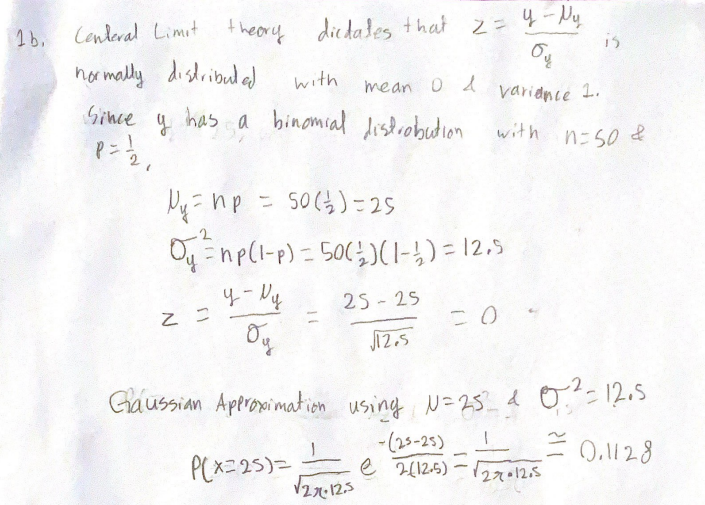 1b. Centeral Limit theory dictates that z = (y - μy)/σy is
normally distributed with mean 0 & variance 1.
Since y has a binomial distrobution with n=50 &
p=1/2,
μy = np = 50(1/2) = 25
σy² = np(1-p) = 50(1/2)(1-1/2) = 12.5
z = (y - μy)/σy = (25 - 25)/√12.5 = 0
Gaussian Approximation using μ=25 & σ²=12.5
P(x=25) = 1/√(2π·12.5) e^(-(25-25)/2(12.5)) = 1/√(2π·12.5) ≅ 0.1128